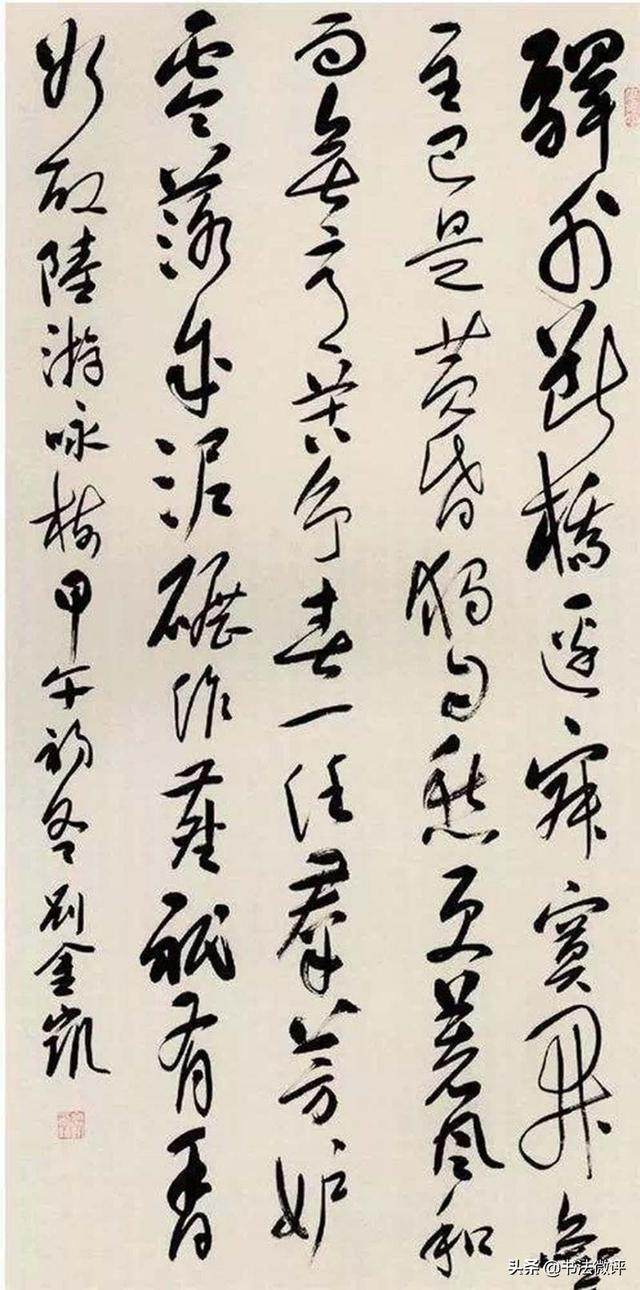 驛外斷橋邊寂寞開無
主已是黄昏獨自愁更著風和
雨無意苦争春一任羣芳妒
零落成泥碾作塵祇有香
如故陸游咏梅甲午初冬刘金凯
头条 @书法微评